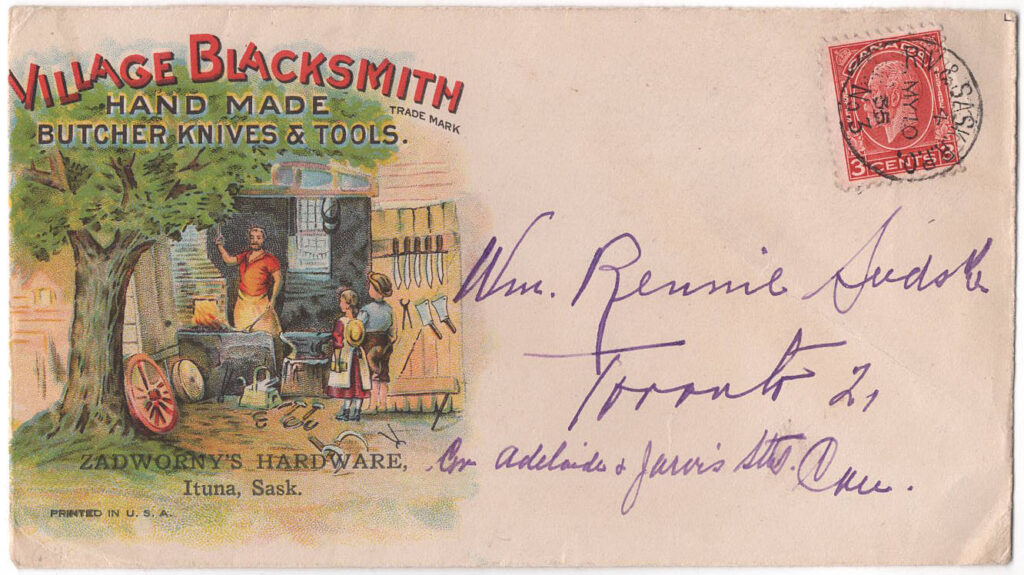 VILLAGE BLACKSMITH
HAND MADE
TRADE MARK
BUTCHER KNIVES & TOOLS.
ZADWORNY'S HARDWARE,
Ituna, Sask.
PRINTED IN U. S. A.
CANADA
3 CENTS 3
R.W. & SASK. R.P.O.
4
MY 10
35
No. 3
Wm. Rennie
Toronto 2,
Cor Adelaide & Jarvis Sts. Can.